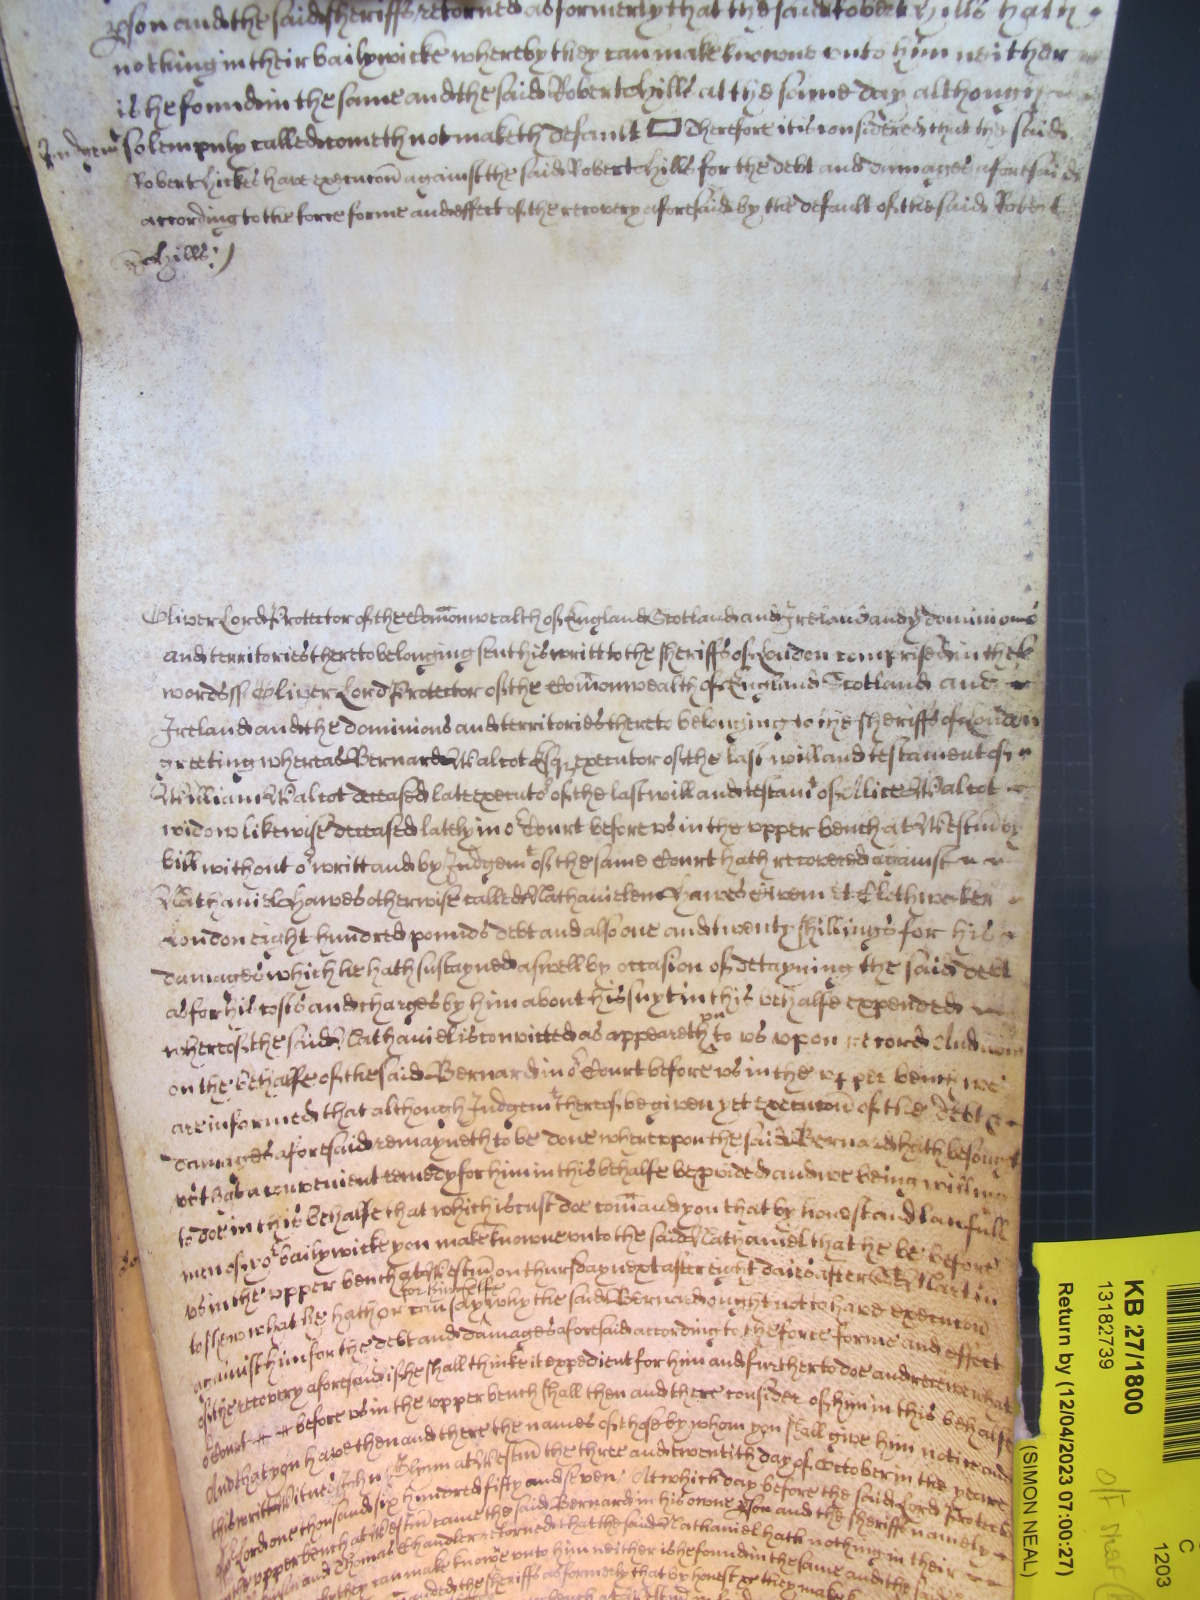 pson and the said sheriffs retorned as formerly that the said Robert Hills hath
nothing in their bailywicke whereby they can make knowne unto him neither
is he found in the same and the said Robert Hills at the same day although
Judgemt solempnly called cometh not maketh default Therefore it is considered that the said
Robert Hickes have execucon against the said Robert Hills for the debt and damages aforesaid
according to the force forme and effect of the recovery aforesaid by the default of the said Robert
Hills
Oliver Lord Protector of the Comonwealth of England Scotland and Ireland and y dominions
and territories thereto belonging sent his writt to the sheriffs of London comprised in these
words ss Oliver Lord Protector of the Comonwealth of England Scotland and
Ireland and the dominions and territories thereto belonging to the sheriffs of London
greeting whereas Bernard Walcot Esqr executor of the last will and testament of
William Walcot deceased late executor of the last will and testamt of Alice Walcot
widow likewise deceased lately in or Court before us in the upper bench at Westmr by
bill without or writt and by Judgemt of the same Court hath recovered against
Nathaniel Hawes otherwise called Nathanielem Hawes Civem et Clothworker
London eight hundred pounds debt and also one and twenty shillings for his
damages which he hath sustayned aswell by occasion of detayning the said debt
as for his costs and charges by him about his suyt in this behalfe expended
whereof the said Nathaniel is convicted as appeareth to us upon record And now
on the behalfe of the said Bernard in or Court before us in the upper bench we
are informed that although Judgemt thereof be given yet execucon of the debt &
damages aforesaid remayneth to be done whereupon the said Bernard hath besought
us that a convenient remedy for him in this behalfe be pvided and we being willing
to doe in this behalfe that which is just doe comand you that by honest and lawfull
men of yor bailywicke you make knowne unto the said Nathaniel that he be before
us in the upper bench at Westmr on thursday next after eight daies after St Martin
to shew what he hath or can for himselfe say why the said Bernard ought not to have execucon
against him for the debt and damages aforesaid according to the force forme and effect
of the recovery aforesaid if he shall thinke it expedient for him and further to doe and receive what
or Court before us in the upper bench shall then and there consider of him in this behalfe
And that you have then and there the names of those by whom you shall give him notice and
this writt Witnes John Glynn at Westmr the three and twentith day of October in the yeare
of or Lord one thousand six hundred fifty and seven At which day before the said Lord Protector
in the upper bench at Westmr came the said Bernard in his owne pson and the sheriffs namely
and Thomas Chandler retorned that the said Nathaniel hath nothing in their
they can make knowne unto him neither is he found in the same and the said
the sheriffs as formerly that by honest &c they make
KB 27/1800
13182739
Return by (12/04/2023 07:00:27)
(SIMON NEAL)
C
1203